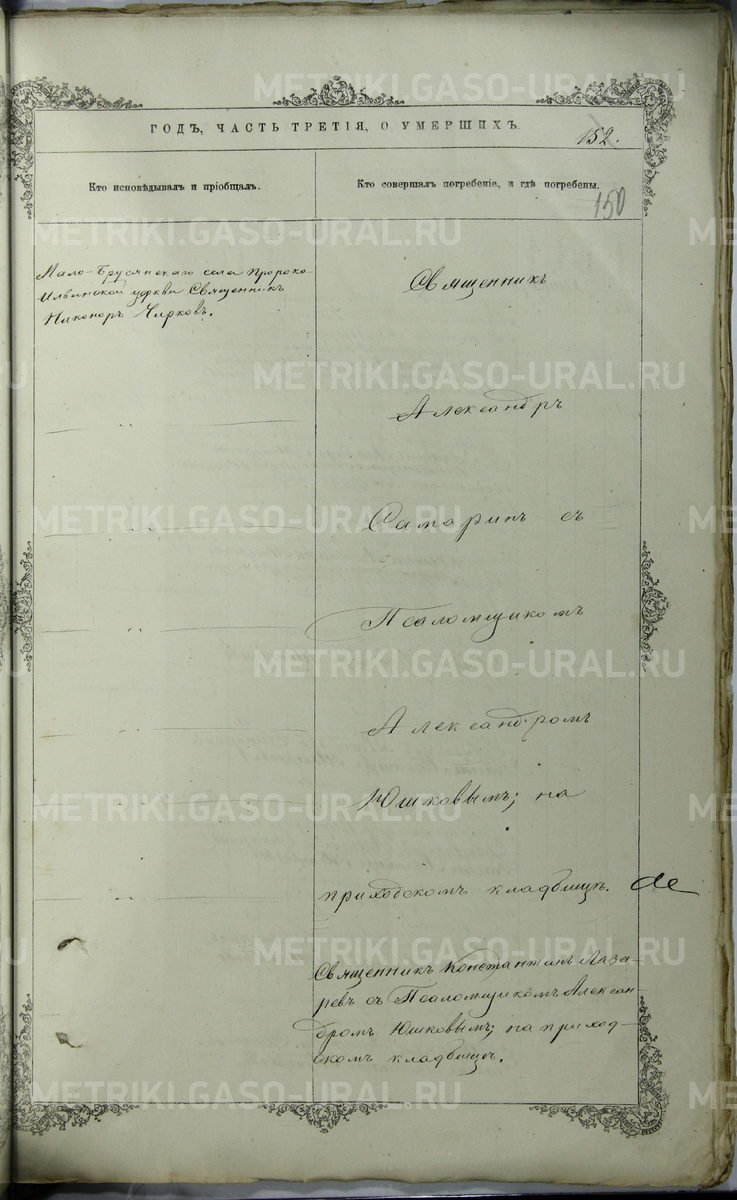 METRIKI.GASO-URAL.RU
ГОДЪ, ЧАСТЬ ТРЕТІЯ, О УМЕРШИХЪ.
152.
Кто исповѣдывалъ и пріобщалъ.
Кто совершалъ погребеніе, и гдѣ погребены.
150
Мало-Брусянскаго села Пророко-
Ильинской церкви Священникъ
Никоноръ Чирковъ.
Священникъ
Александръ
Саморинъ съ
Псаломщикомъ
Александромъ
Юшковымъ; на
приходскомъ кладбищѣ.
Священникъ Константинъ Лаза-
ревъ съ Псаломщикомъ Алексан-
дромъ Юшковымъ; на приход-
скомъ кладбищѣ.